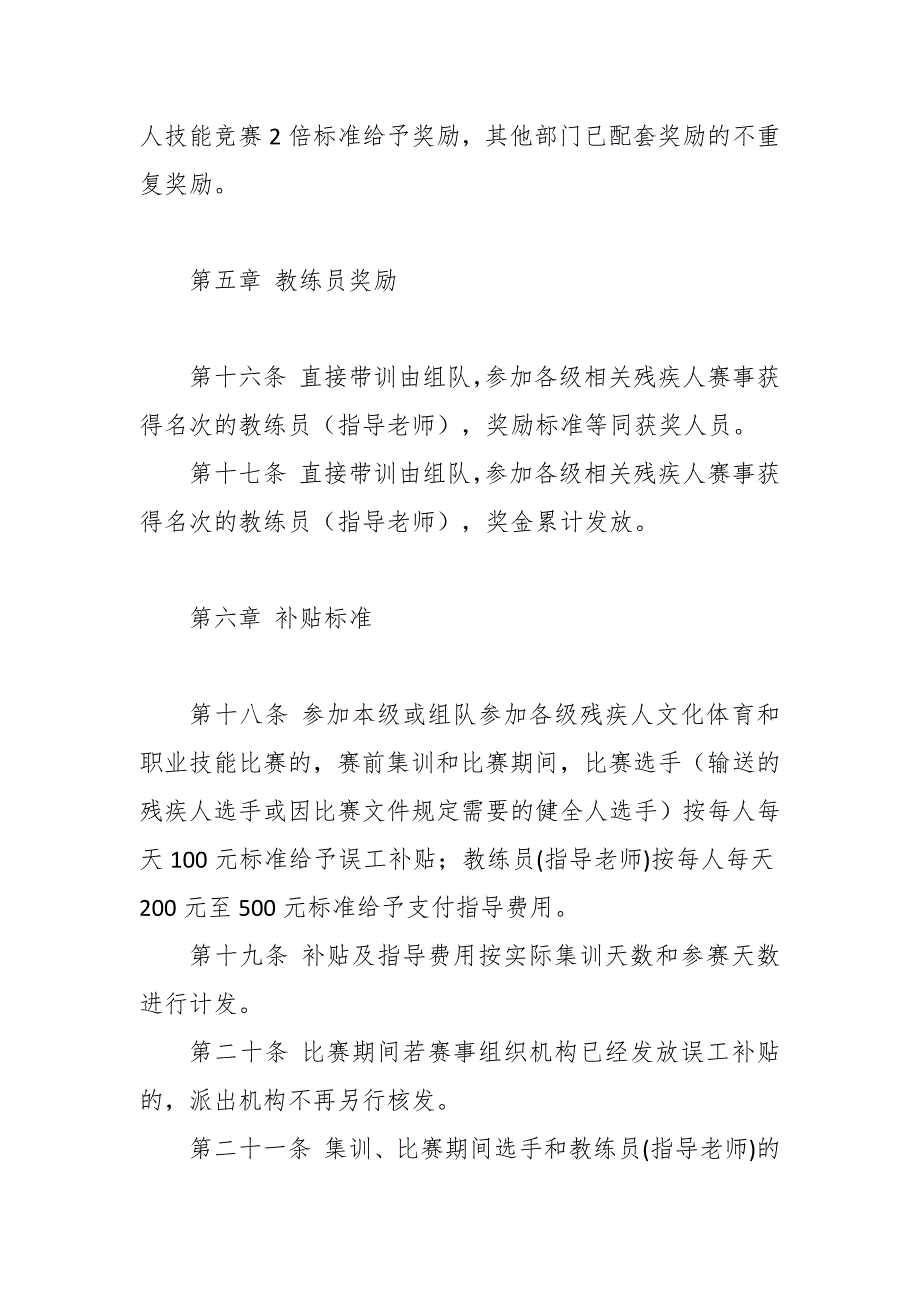 人技能竞赛 2 倍标准给予奖励，其他部门已配套奖励的不重
复奖励。
第五章 教练员奖励
第十六条 直接带训由组队，参加各级相关残疾人赛事获
得名次的教练员（指导老师），奖励标准等同获奖人员。
第十七条 直接带训由组队，参加各级相关残疾人赛事获
得名次的教练员（指导老师），奖金累计发放。
第六章 补贴标准
第十八条 参加本级或组队参加各级残疾人文化体育和
职业技能比赛的，赛前集训和比赛期间，比赛选手（输送的
残疾人选手或因比赛文件规定需要的健全人选手）按每人每
天 100 元标准给予误工补贴；教练员(指导老师)按每人每天
200 元至 500 元标准给予支付指导费用。
第十九条 补贴及指导费用按实际集训天数和参赛天数
进行计发。
第二十条 比赛期间若赛事组织机构已经发放误工补贴
的，派出机构不再另行核发。
第二十一条 集训、比赛期间选手和教练员(指导老师)的